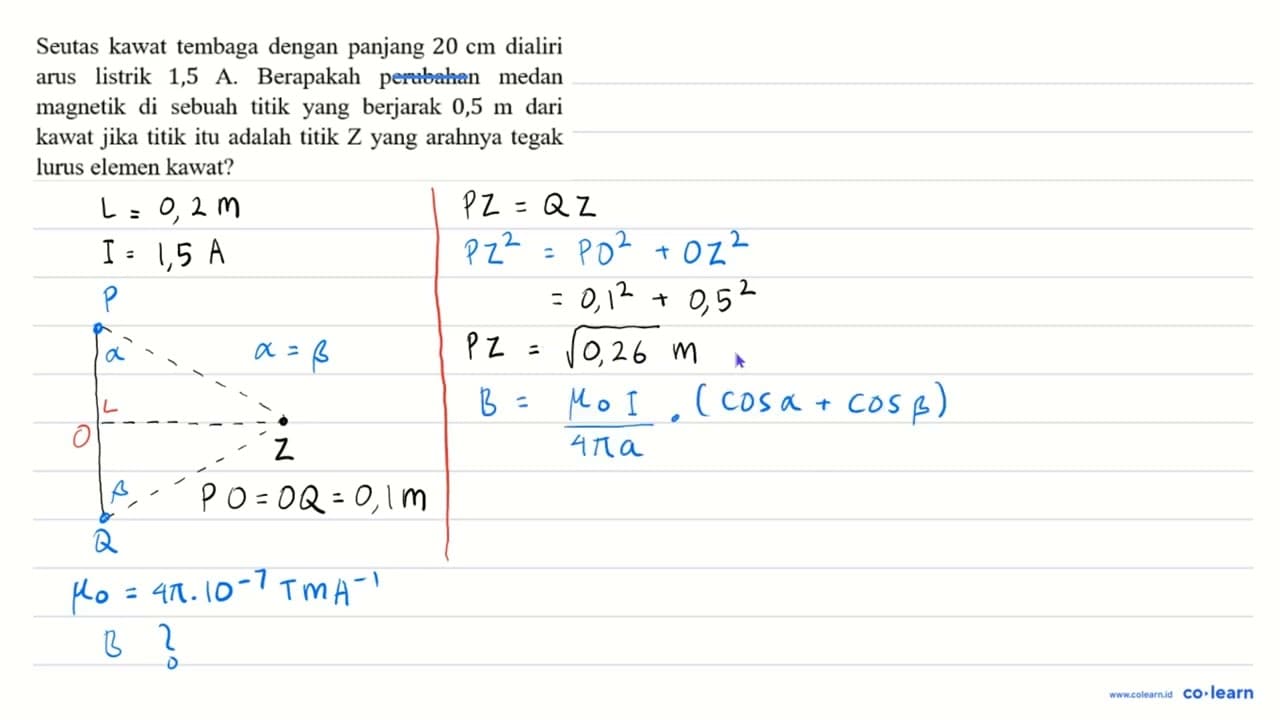 Seutas kawat tembaga dengan panjang 20 cm dialiri
arus listrik 1,5 A. Berapakah perubahan medan
magnetik di sebuah titik yang berjarak 0,5 m dari
kawat jika titik itu adalah titik Z yang arahnya tegak
lurus elemen kawat?
L = 0,2 m
I = 1,5 A
P
α
α = β
L
O
Z
β
PO = OQ = 0,1 m
Q
μ₀ = 4π.10⁻⁷ TmA⁻¹
B ?
PZ = QZ
PZ² = PO² + OZ²
= 0,1² + 0,5²
PZ = √0,26 m
B = μ₀ I / 4πa . (cos α + cos β)
www.colearn.id co·learn